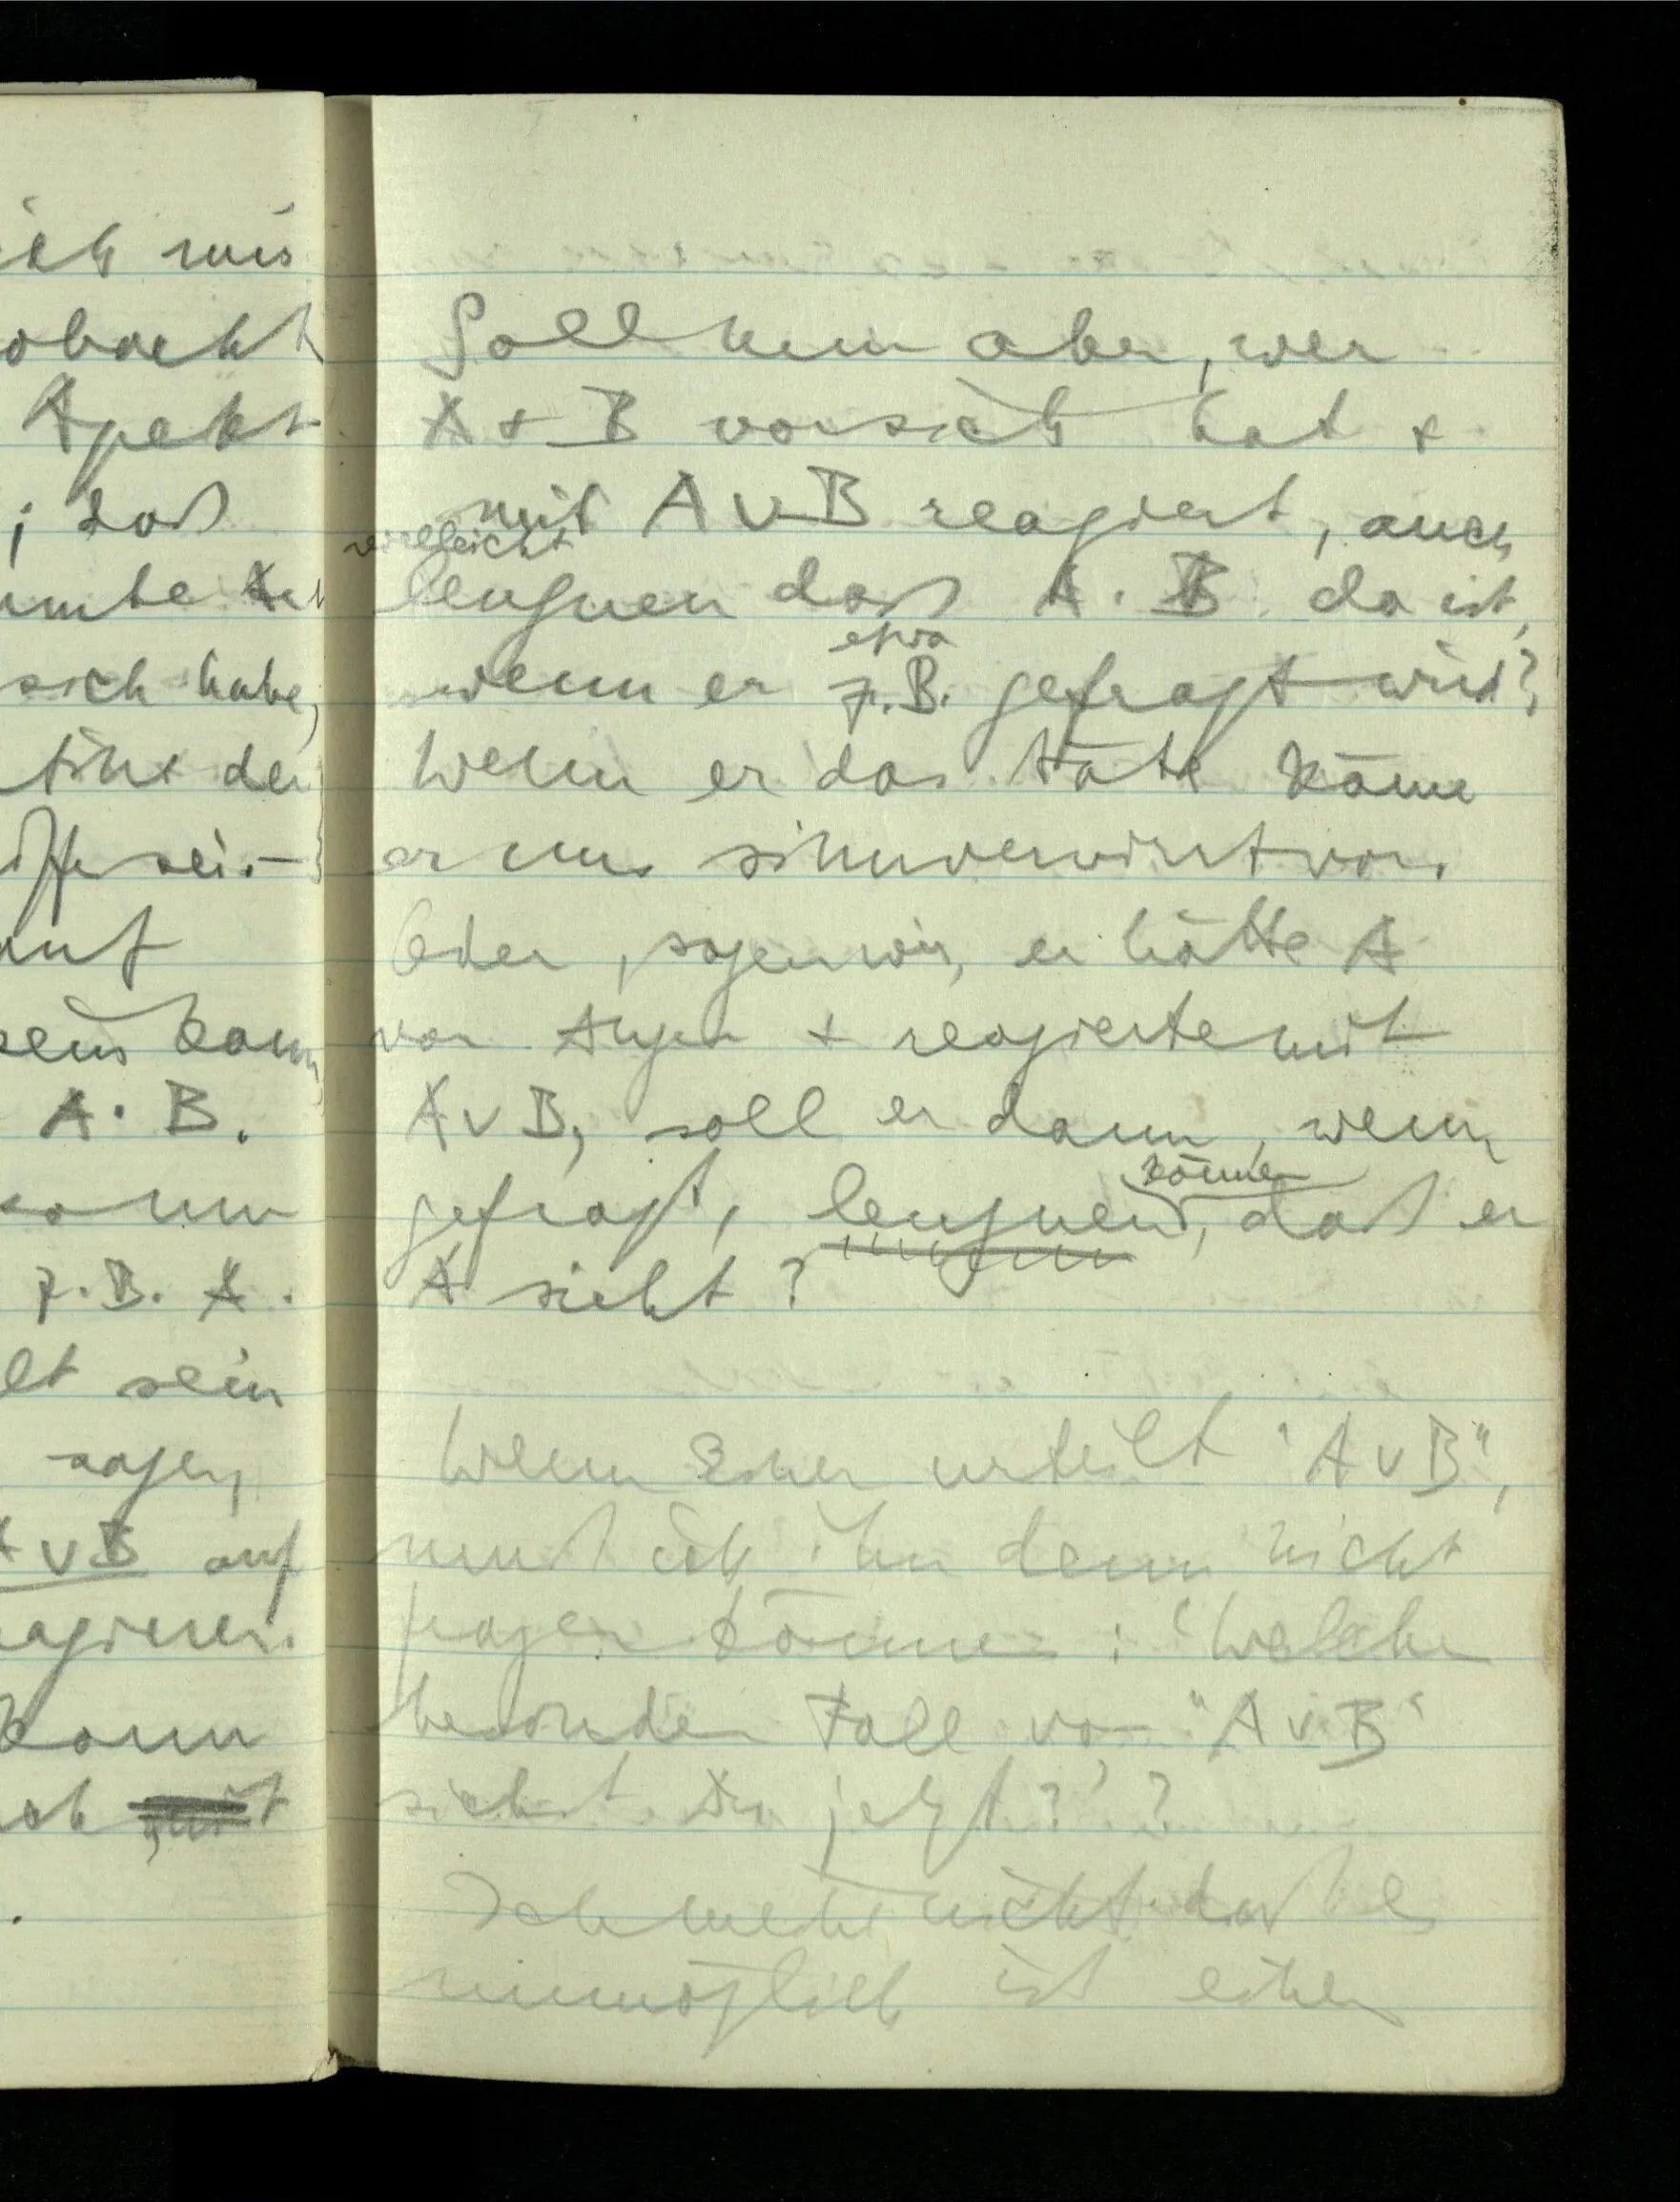 ich mis
obacht
Aspekt
; daß
sich habe,
tike der
auf
sein kann
A . B.
z.B. A.
lt sein
sagen,
A v B auf
agieren.
kann
Soll nun aber, wer
A + B vor sich hat +
mit A v B reagiert, auch
vielleicht
leugnen daß A . B da ist,
etwa
wenn er z.B. gefragt wird?
Wenn er das täte käme
er uns sinnverwirrt vor.
Oder, sagen wir, er hätte A
vor Augen + reagierte mit
A v B, soll er dann, wenn
könne
gefragt, leugnen, daß er
A sieht?
Wenn Einer urteilt "A v B",
muß ich ihn denn nicht
fragen können: 'Welchen
besondern Fall von "A v B"
siehst Du jetzt?'?
Ich meine nicht daß es
unmöglich ist einen